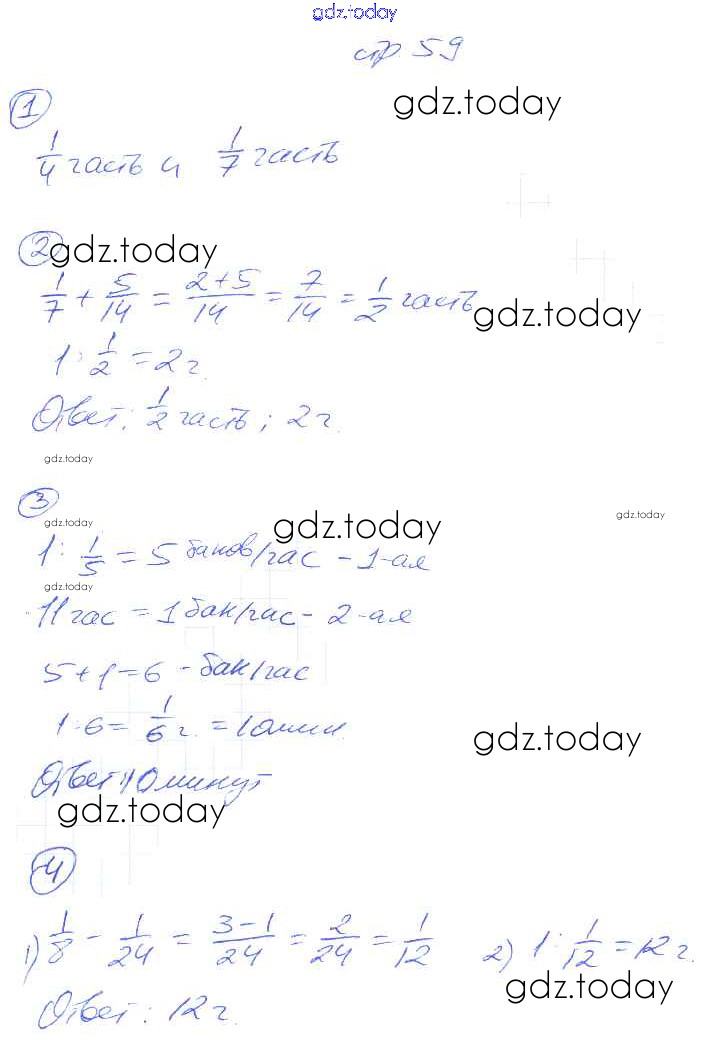 gdz.today
стр 59
1
gdz.today
1/4 часть и 1/7 часть
2
gdz.today
1/7 + 5/14 = 2+5/14 = 7/14 = 1/2 часть
gdz.today
1 : 1/2 = 2 ч.
Ответ: 1/2 часть; 2 ч.
gdz.today
3
gdz.today
gdz.today
gdz.today
1 : 1/5 = 5 баков/час - 1-ая
gdz.today
1 час = 1 бак/час - 2-ая
5 + 1 = 6 - бак/час
1 : 6 = 1/6 ч. = 10 мин.
gdz.today
Ответ: 10 минут
gdz.today
4
1) 1/8 - 1/24 = 3-1/24 = 2/24 = 1/12 2) 1 : 1/12 = 12 ч.
gdz.today
Ответ: 12 ч.